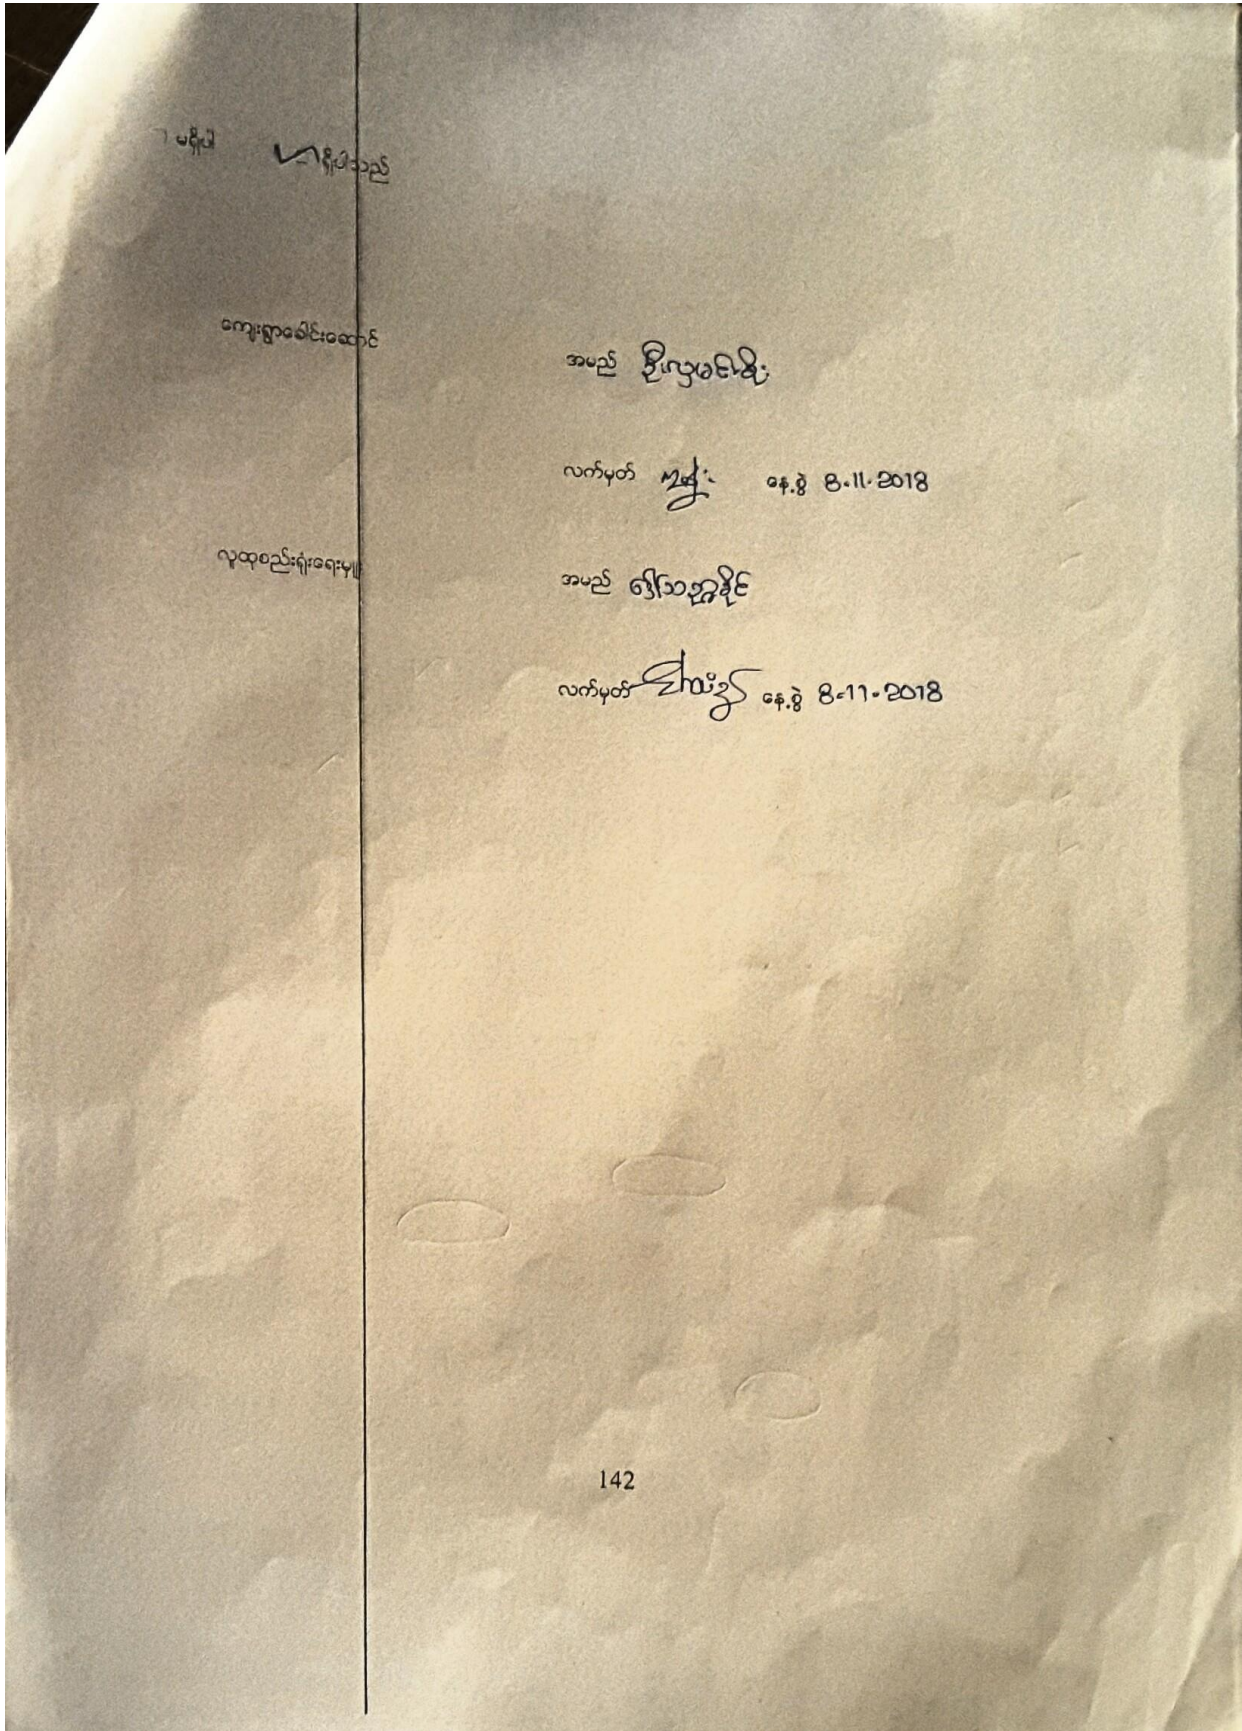 မရှိပါ ရှိပါသည်
ကျေးရွာခေါင်းဆောင်
အမည် ဦးလှမင်းစိုး
လက်မှတ် နေ့စွဲ 8.11.2018
လူထုစည်းရုံးရေးမှူး
အမည် ဒေါ်သဏ္ဍာခိုင်
လက်မှတ် နေ့စွဲ 8.11.2018
142